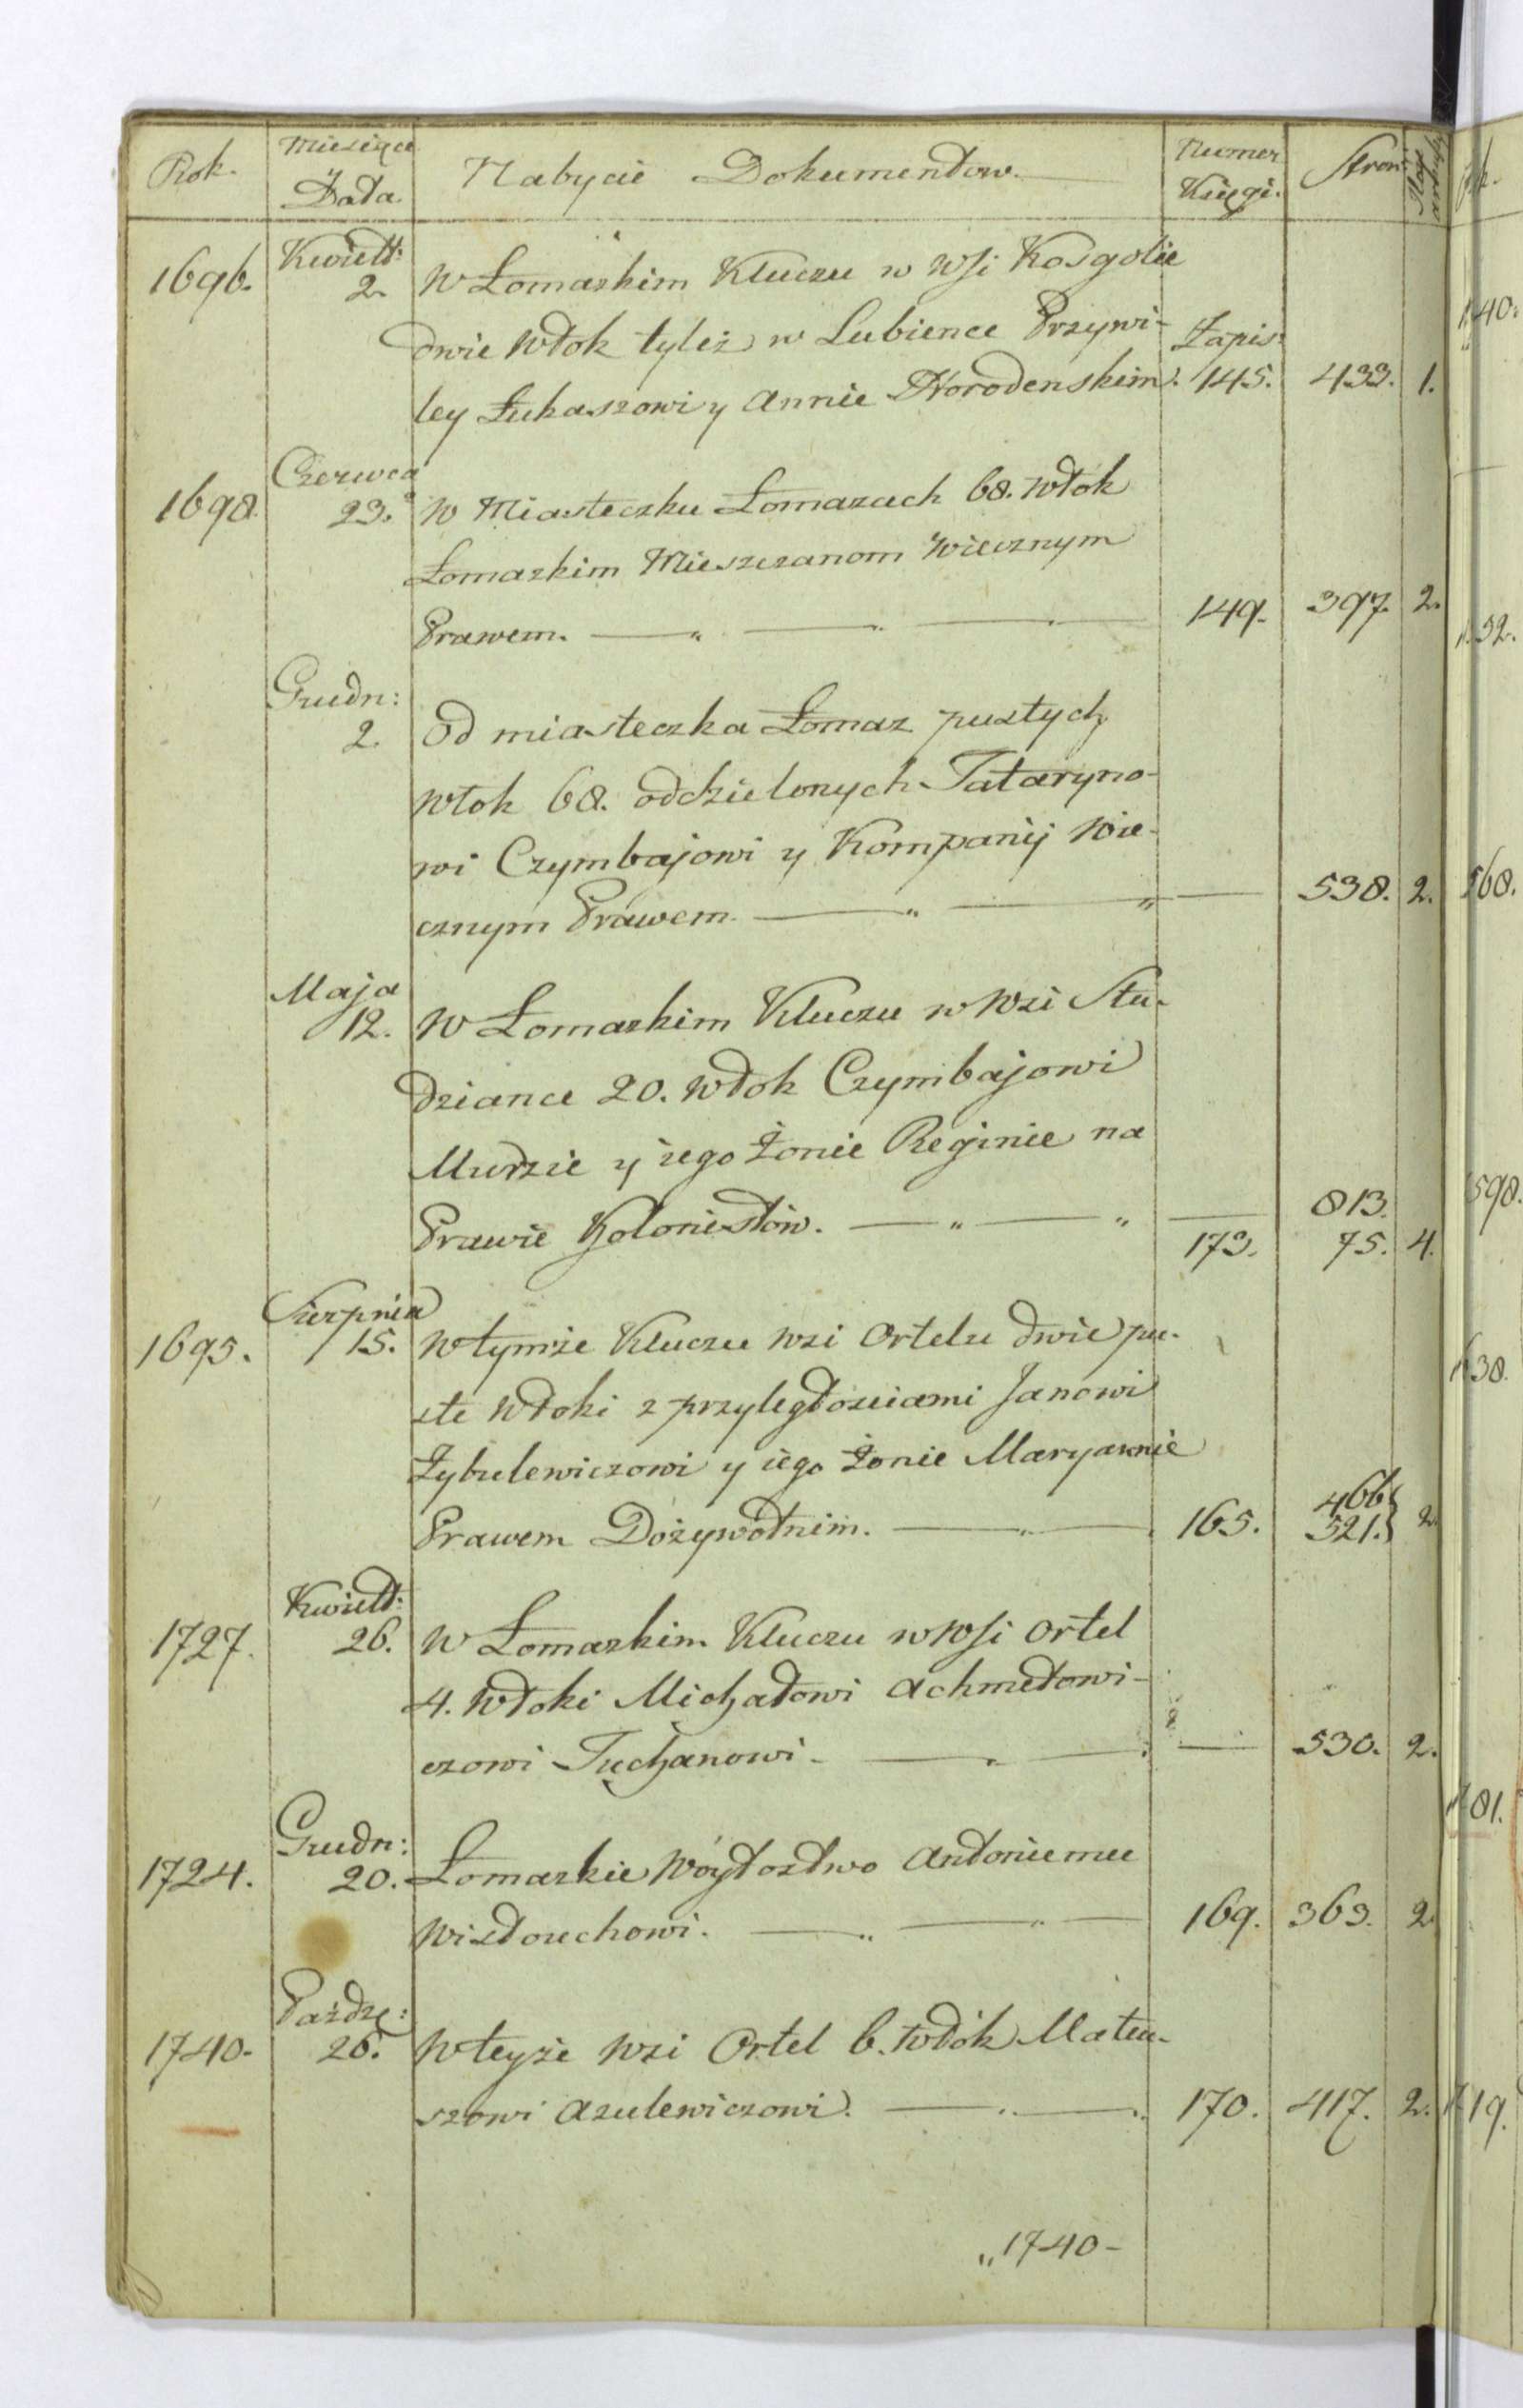 Rok. Miesiące Data. Nabycie Dokumentow. Numer Księgi. Stron:
Kwiett:
1696. 2. W Łomazkim Kluczu w Wsi Kosgolie
dwie Włok tyleż w Lubience Przywi- Zapis:
ley Łukaszowi y Annie Horodenskim. 145. 433. 1.
Czerwca
1698. 23. W Miasteczku Łomazach 68. Włok
Łomazkim Mieszczanom Wiecznym
Prawem. 149. 397. 2.
Grudn:
2. Od miasteczka Łomaz pustych
Włok 68. oddzielonych Tataryno-
wi Czymbajowi y Kompanij Wie-
cznym Prawem. 538. 2.
Maja
12. W Łomazkim Kluczu w Wsi Stu-
dziance 20. Włok Czymbajowi
Murzie y iego Żonie Reginie na
Prawie Kolonistów. 813.
173. 75. 4.
Sierpnia
1695. 15. W tymże Kluczu wsi Ortelu dwie pu-
ste Włoki z przyległosciami Janowi
Zybulewiczowi y iego Żonie Maryannie 466.
Prawem Dożywotnim. 165. 521. 2.
Kwiett:
1727. 26. W Łomazkim Kluczu w Wsi Ortel
4. Włoki Michałowi Achmetowi-
czowi Tuchanowi. 530. 2.
Grudn:
1724. 20. Łomazkie Wóytostwo Antoniemu
Wistouchowi. 169. 363. 2.
Paźdz:
1740. 26. W teyże Wsi Ortel 6. Włók Mateu-
szowi Azulewiczowi. 170. 417. 2.
"1740-